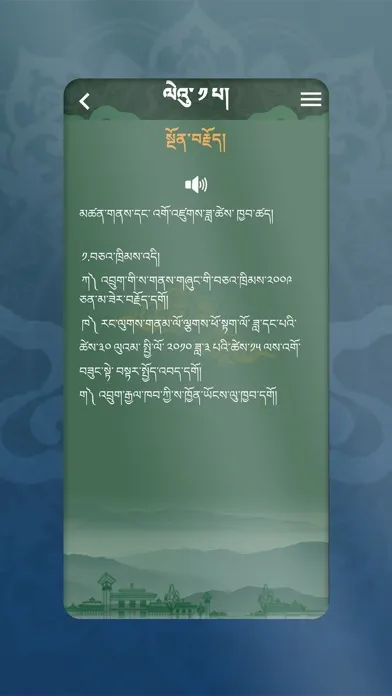 ལེའུ་ ༡ པ།
སྔོན་བརྗོད།
མཚན་གནས་དང་ འགོ་འཛུགས་ཟླ་ཚེས་ ཁྱབ་ཚད།
༡.བཅའ་ཁྲིམས་འདི།
ཀ༽ འབྲུག་གི་ས་གནས་གཞུང་གི་བཅའ་ཁྲིམས་༢༠༠༩
ཅན་མ་ཟེར་བརྗོད་དགོ།
ཁ༽ རང་ལུགས་གནམ་ལོ་ལྕགས་ཕོ་སྟག་ལོ་ ཟླ་དང་པའི་
ཚེས་༣༠ ལུའམ་ སྤྱི་ལོ་ ༢༠༡༠ ཟླ་༣ པའི་ཚེས་༡༥ ལས་འགོ་
བཟུང་སྟེ་ བསྟར་སྤྱོད་འབད་དགོ།
ག༽ འབྲུག་རྒྱལ་ཁབ་ཀྱི་ས་ཁྱོན་ཡོངས་ལུ་ཁྱབ་དགོ།